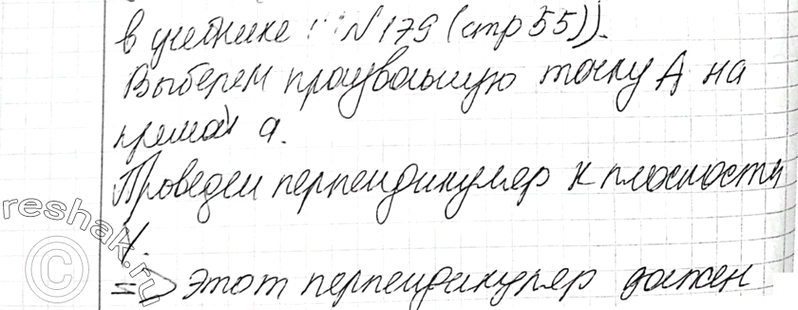 в учебнике : №179 (стр 55)).
Выберем произвольную точку А на
прямой а.
Проведем перпендикуляр к плоскости
γ.
=> Этот перпендикуляр должен
reshak.ru